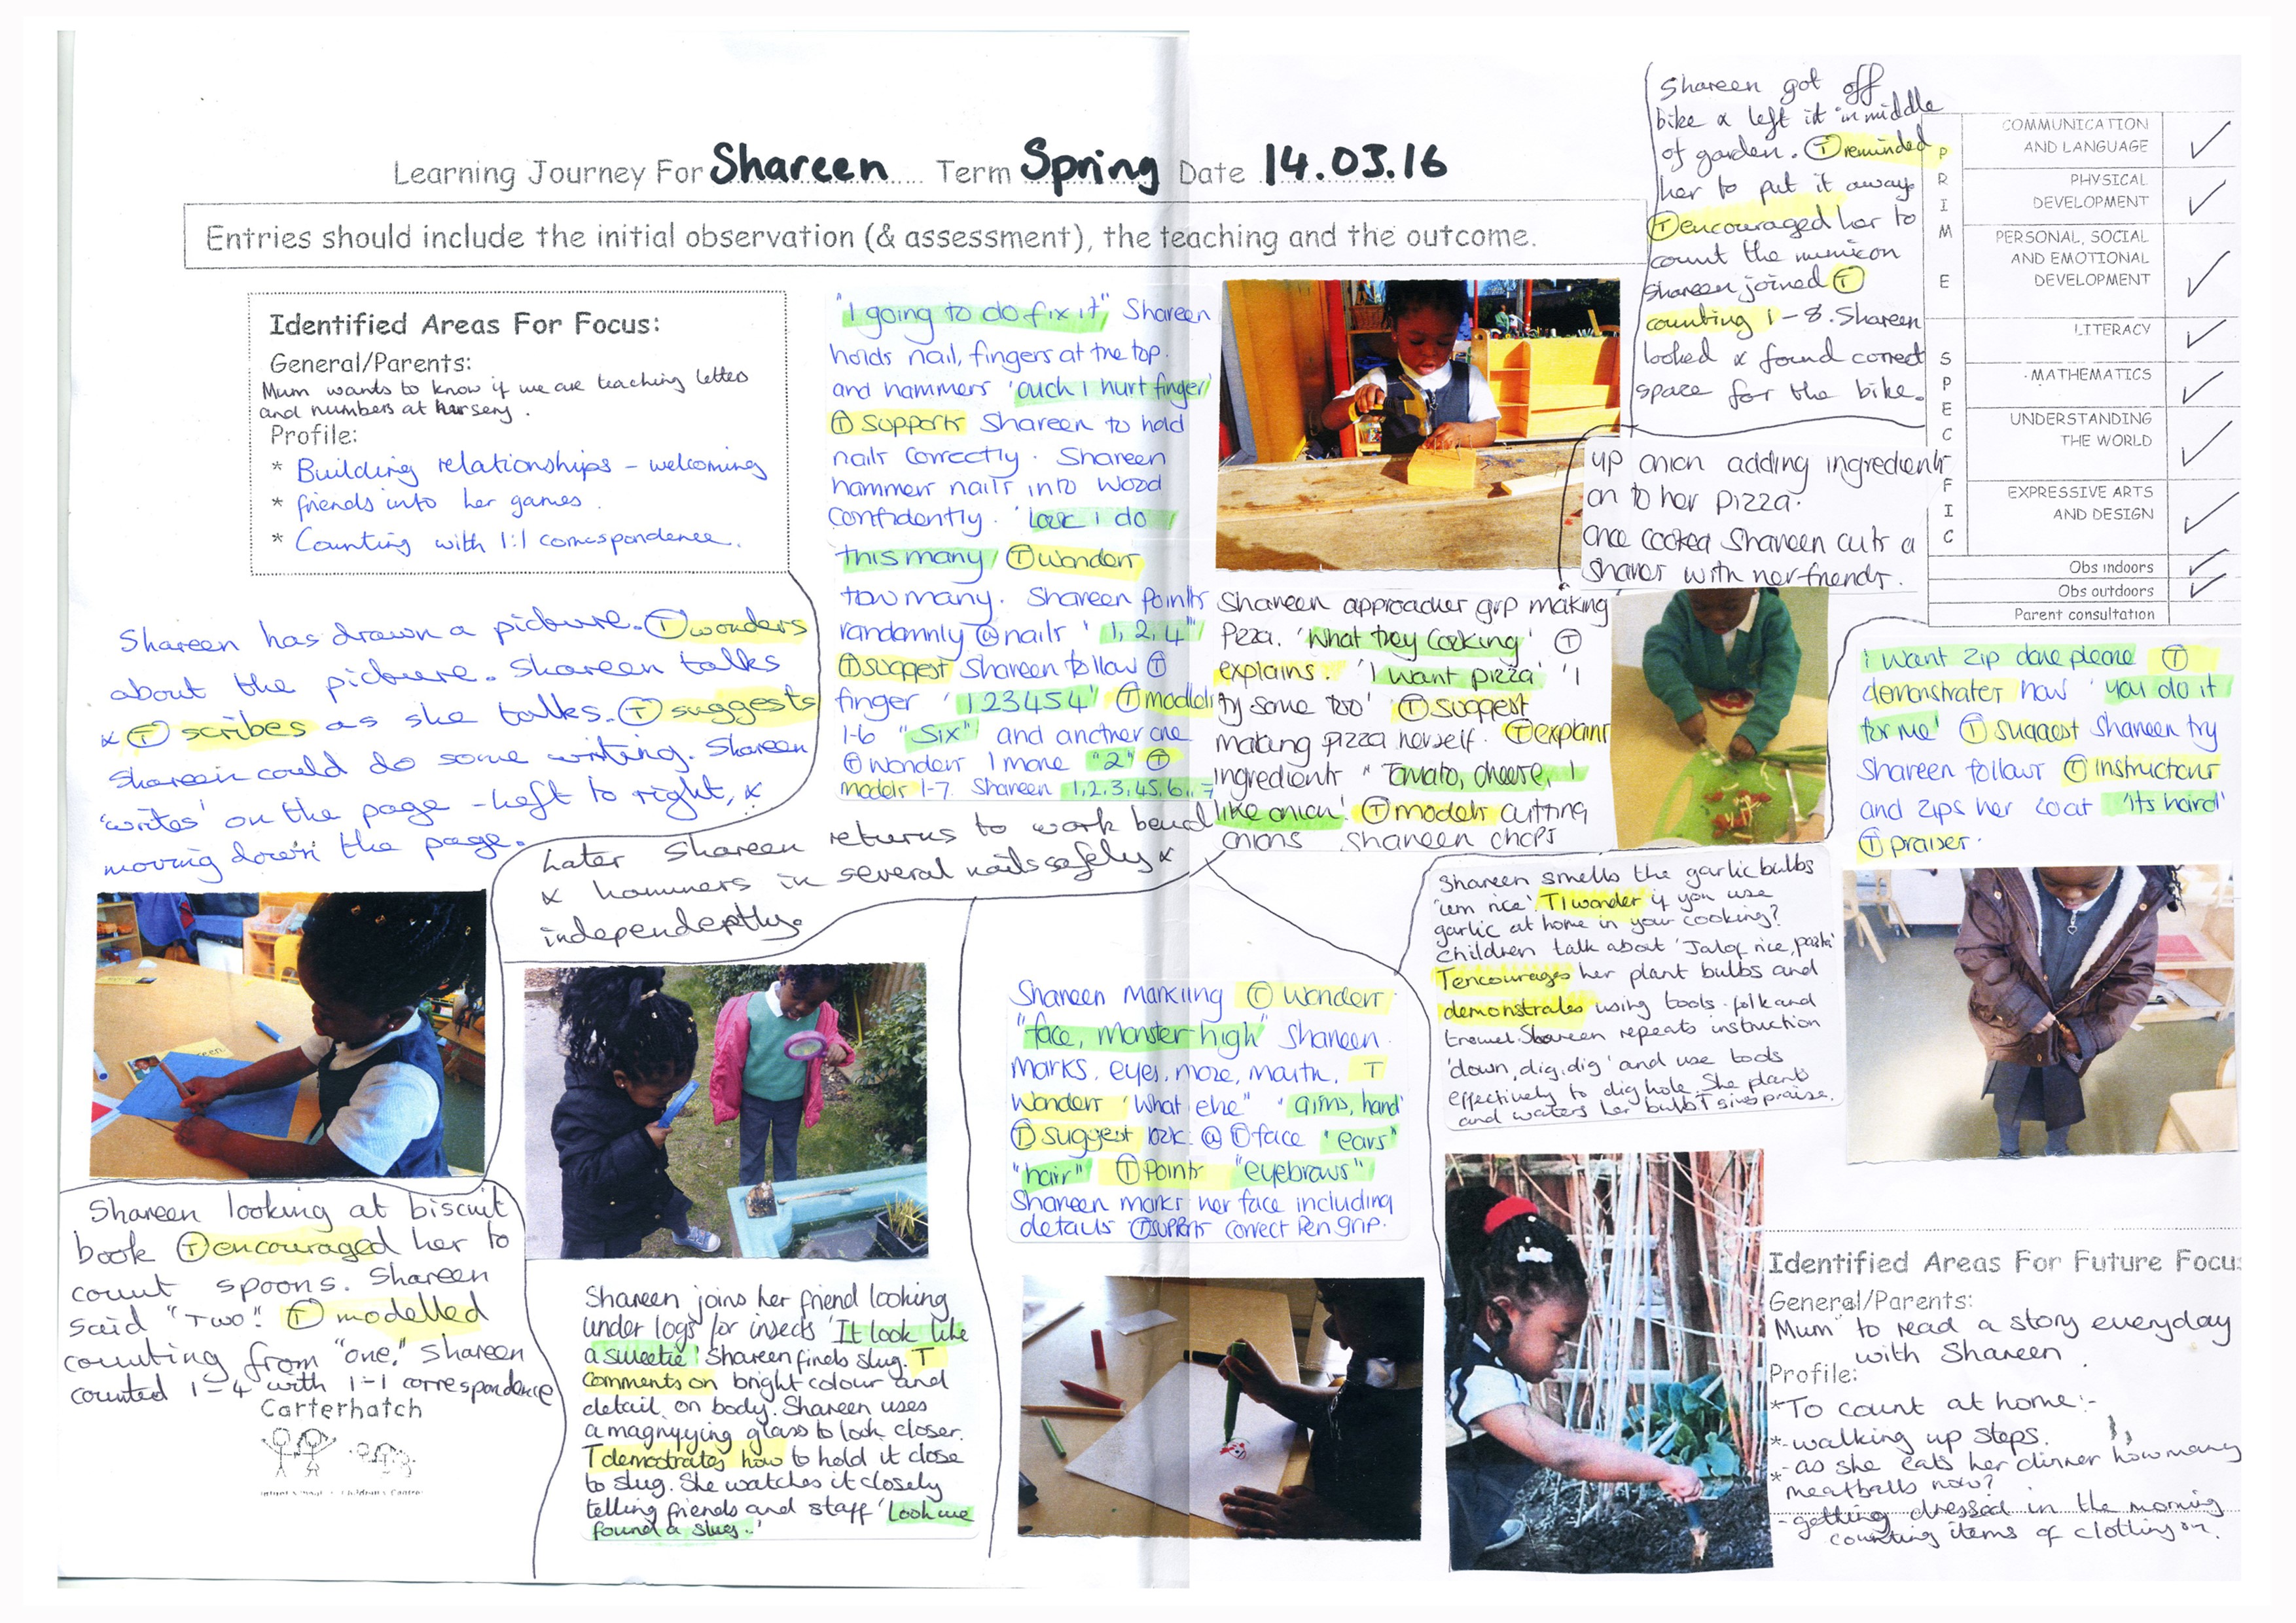 Learning Journey For Shareen Term Spring Date 14.03.16
Entries should include the initial observation (& assessment), the teaching and the outcome.
Identified Areas For Focus:
General/Parents:
Mum wants to know if we are teaching letters
and numbers at nursery.
Profile:
* Building relationships - welcoming
* friends into her games.
* Counting with 1:1 correspondence.
Shareen has drawn a picture. T wonders
about the picture. Shareen talks
& T scribes as she talks. T suggests
Shareen could do some writing. Shareen
'writes' on the page - left to right, &
moving down the page.
"I going to do fix it" Shareen
holds nail, fingers at the top.
and hammers 'ouch I hurt finger'
T supports Shareen to hold
nails correctly. Shareen
hammers nails into wood
confidently. 'look I do
this many' T wonders
how many. Shareen points
randomnly @ nails '1, 2, 4"
T suggest Shareen follow T
finger '123454" T models
1-6 "Six" and another one
T wonders 1 more "2" T
models 1-7. Shareen 1,2,3,4,5,6,,7
Later Shareen returns to work bench
& hammers in several nails safely &
independently.
Shareen got off
bike & left it in middle
of garden. T reminded
her to put it away
T encouraged her to
count the numicon
Shareen joined T
counting 1-8. Shareen
looked & found correct
space for the bike.
PRIME
COMMUNICATION
AND LANGUAGE ✓
PHYSICAL
DEVELOPMENT ✓
PERSONAL, SOCIAL
AND EMOTIONAL
DEVELOPMENT ✓
SPECIFIC
LITERACY ✓
MATHEMATICS ✓
UNDERSTANDING
THE WORLD ✓
EXPRESSIVE ARTS
AND DESIGN ✓
Obs indoors ✓
Obs outdoors ✓
Parent consultation
Shareen approaches grp making
Pizza. 'What they cooking' T
explains. 'I want pizza' 'I
try some too' T suggest
making pizza herself. T explains
ingredients "Tomato, cheese, I
like onion'. T models cutting
onions Shareen chops
up onion adding ingredients
on to her pizza.
Once cooked Shareen cuts a
shares with her friends.
I want zip done please T
demonstrates how 'you do it
for me' T suggest Shareen try
Shareen follows T instructions
and zips her coat 'its hard'
T praises.
Shareen smells the garlic bulbs
'um nice'. T I wonder if you use
garlic at home in your cooking?
children talk about 'Jalof rice, pasta'
T encourages her plant bulbs and
demonstrates using tools - folk and
trowel. Shareen repeats instruction
'down, dig, dig' and use tools
effectively to dig hole. She plants
and waters her bulb T gives praise.
Shareen looking at biscuit
book T encouraged her to
count spoons. Shareen
said "Two". T modelled
counting from "one." Shareen
counted 1-4 with 1-1 correspondence
Carterhatch
Infant School & Children's Centre
Shareen joins her friend looking
under logs for insects 'It look like
a sweetie' Shareen finds slug. T
comments on bright colour and
detail on body. Shareen uses
a magnyying glass to look closer.
T demostrates how to hold it close
to slug. She watches it closely
telling friends and staff 'Look we
found a slug.'
Shareen Markiing T wonders
"face, monster high" Shareen
marks, eyes, nose, mouth. T
wonders 'What else" "arms, hand'
T suggest look @ T face "ears"
"hair" T points "eyebrows"
Shareen marks her face including
details T supports correct pen grip.
Identified Areas For Future Focus
General/Parents:
Mum to read a story everyday
with Shareen.
Profile:
* To count at home:-
* - walking up steps.
* - as she eats her dinner how many
meatballs now?
- getting dressed in the morning
counting items of clothing on.